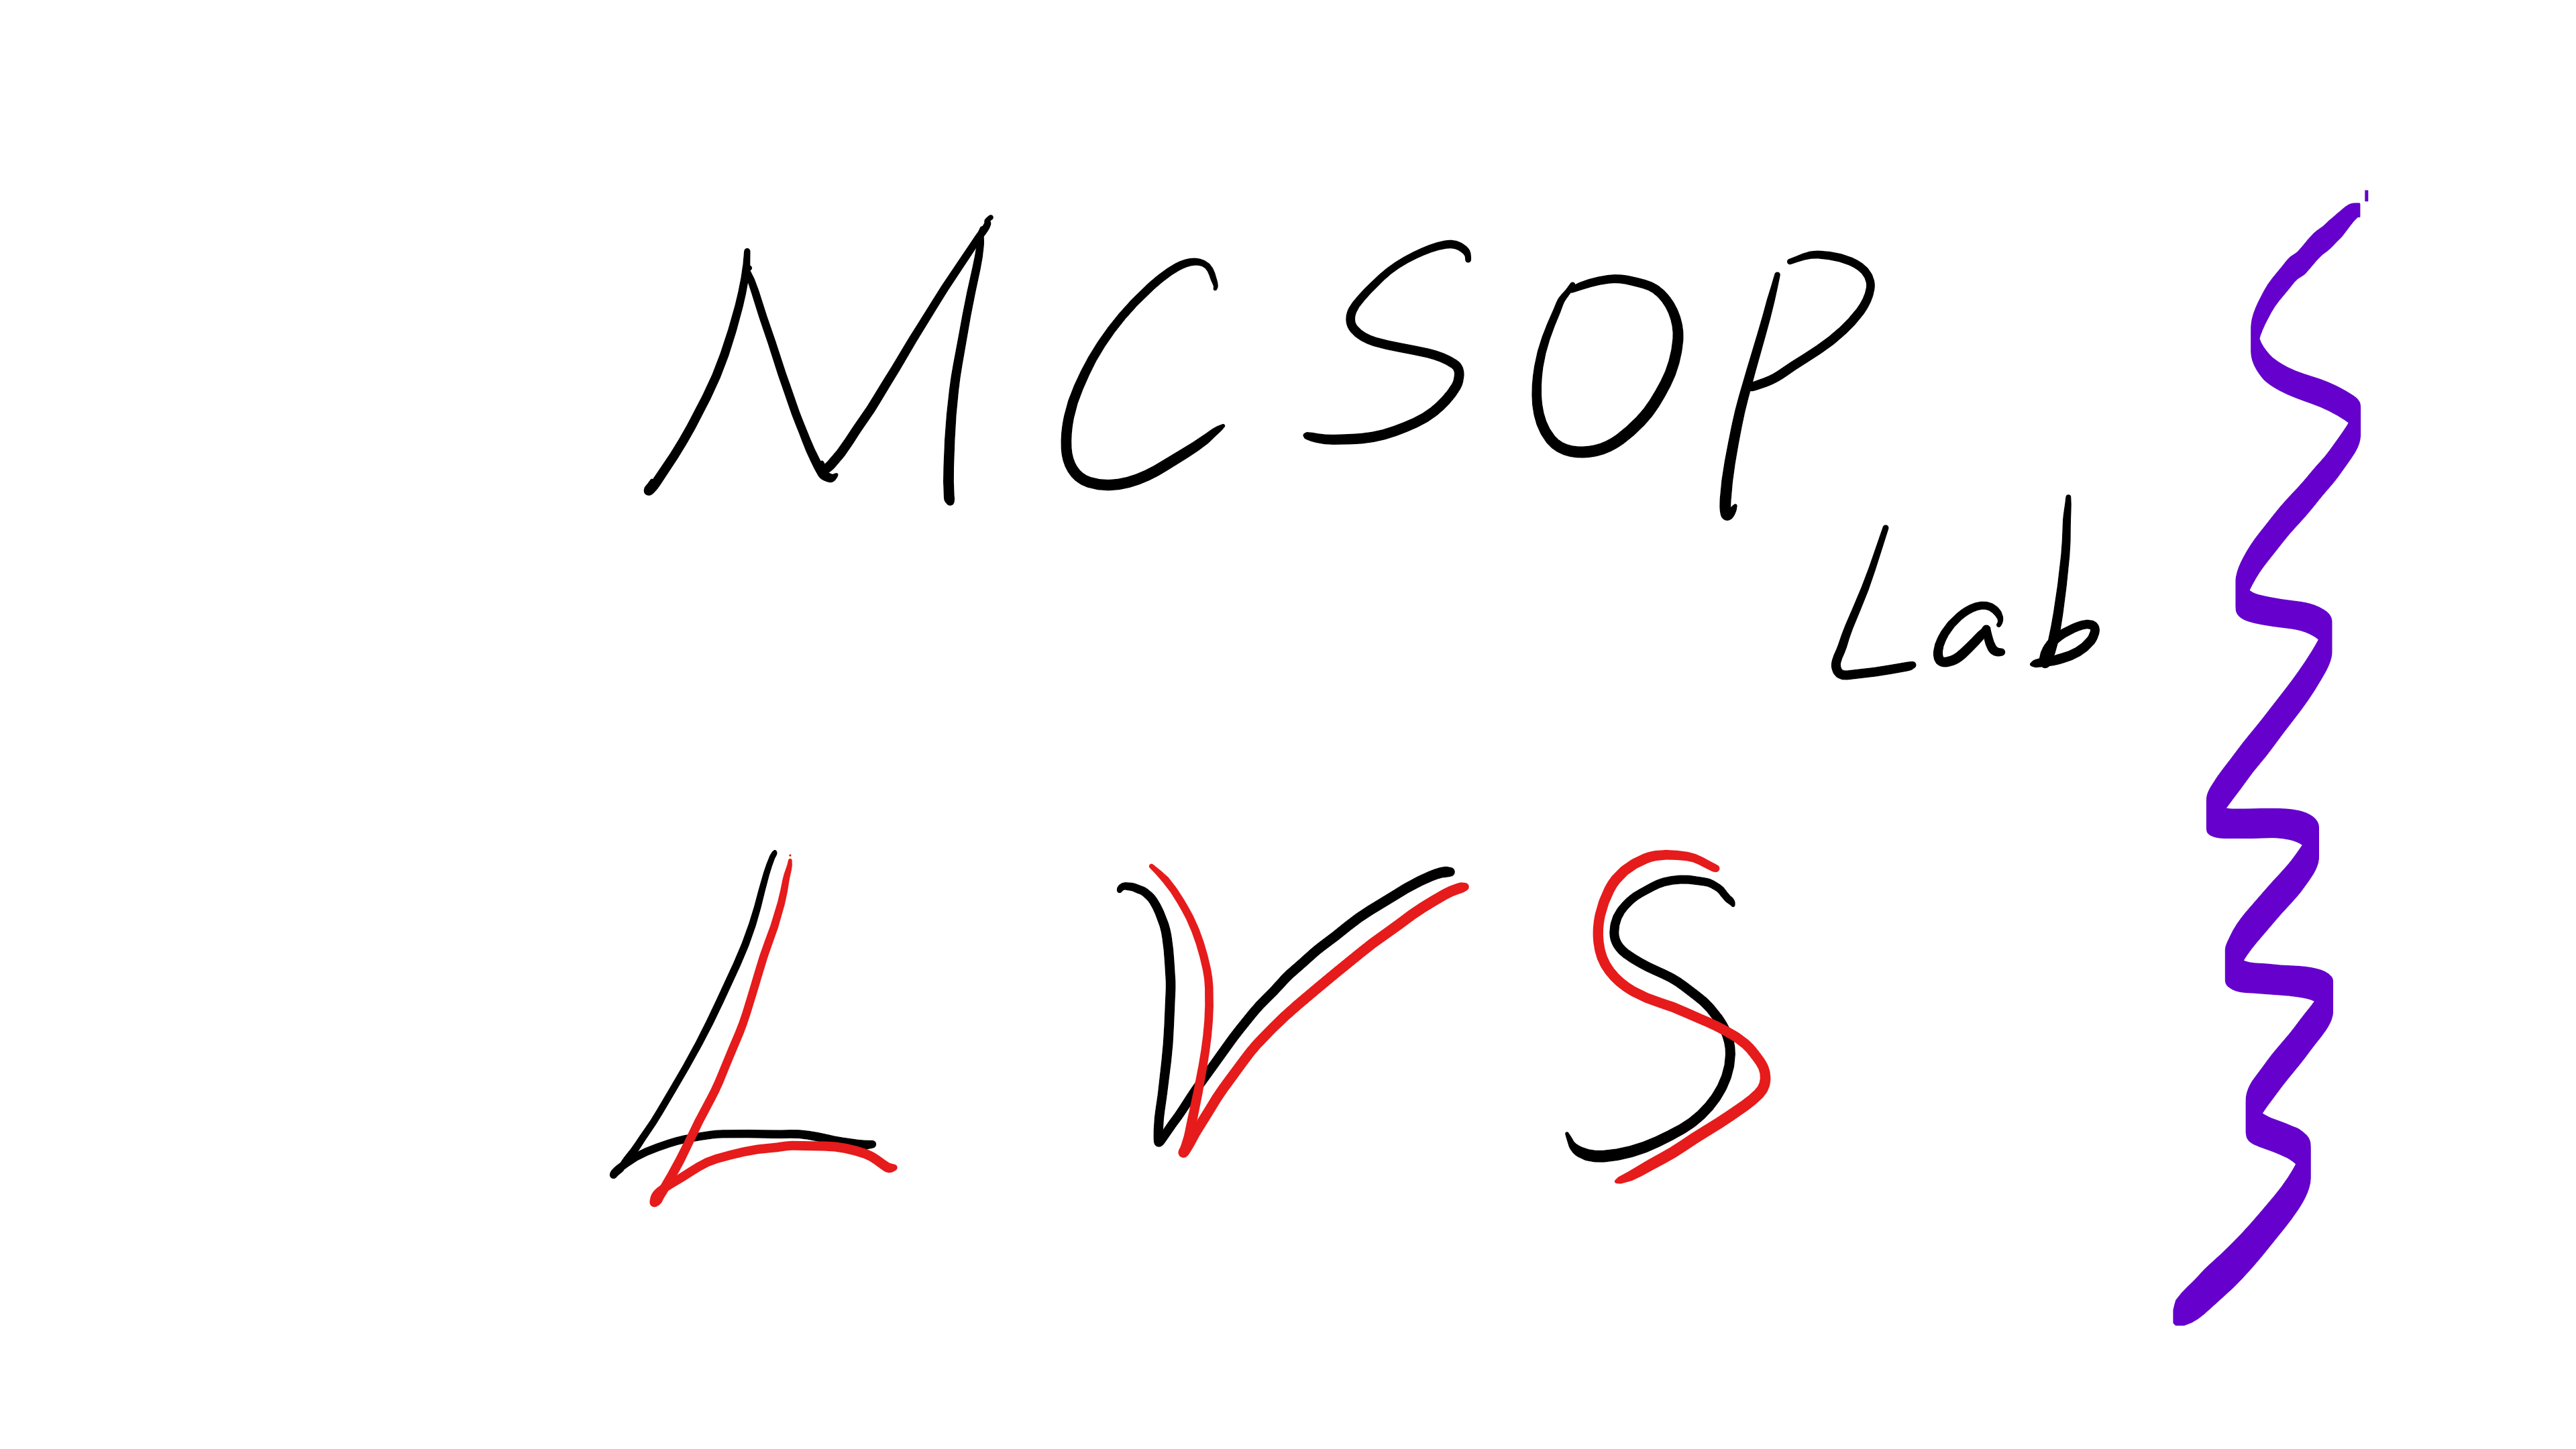 MCSOP
Lab
LVS